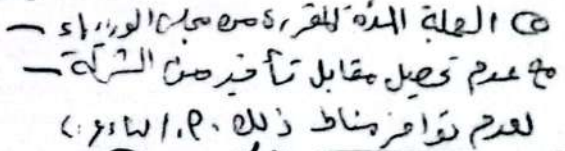 المهلة المدة المقررة من مجلس الوزراء –
مع عدم تحصيل مقابل تأخير من الشركة –
لعدم توافر مناط ذلك .